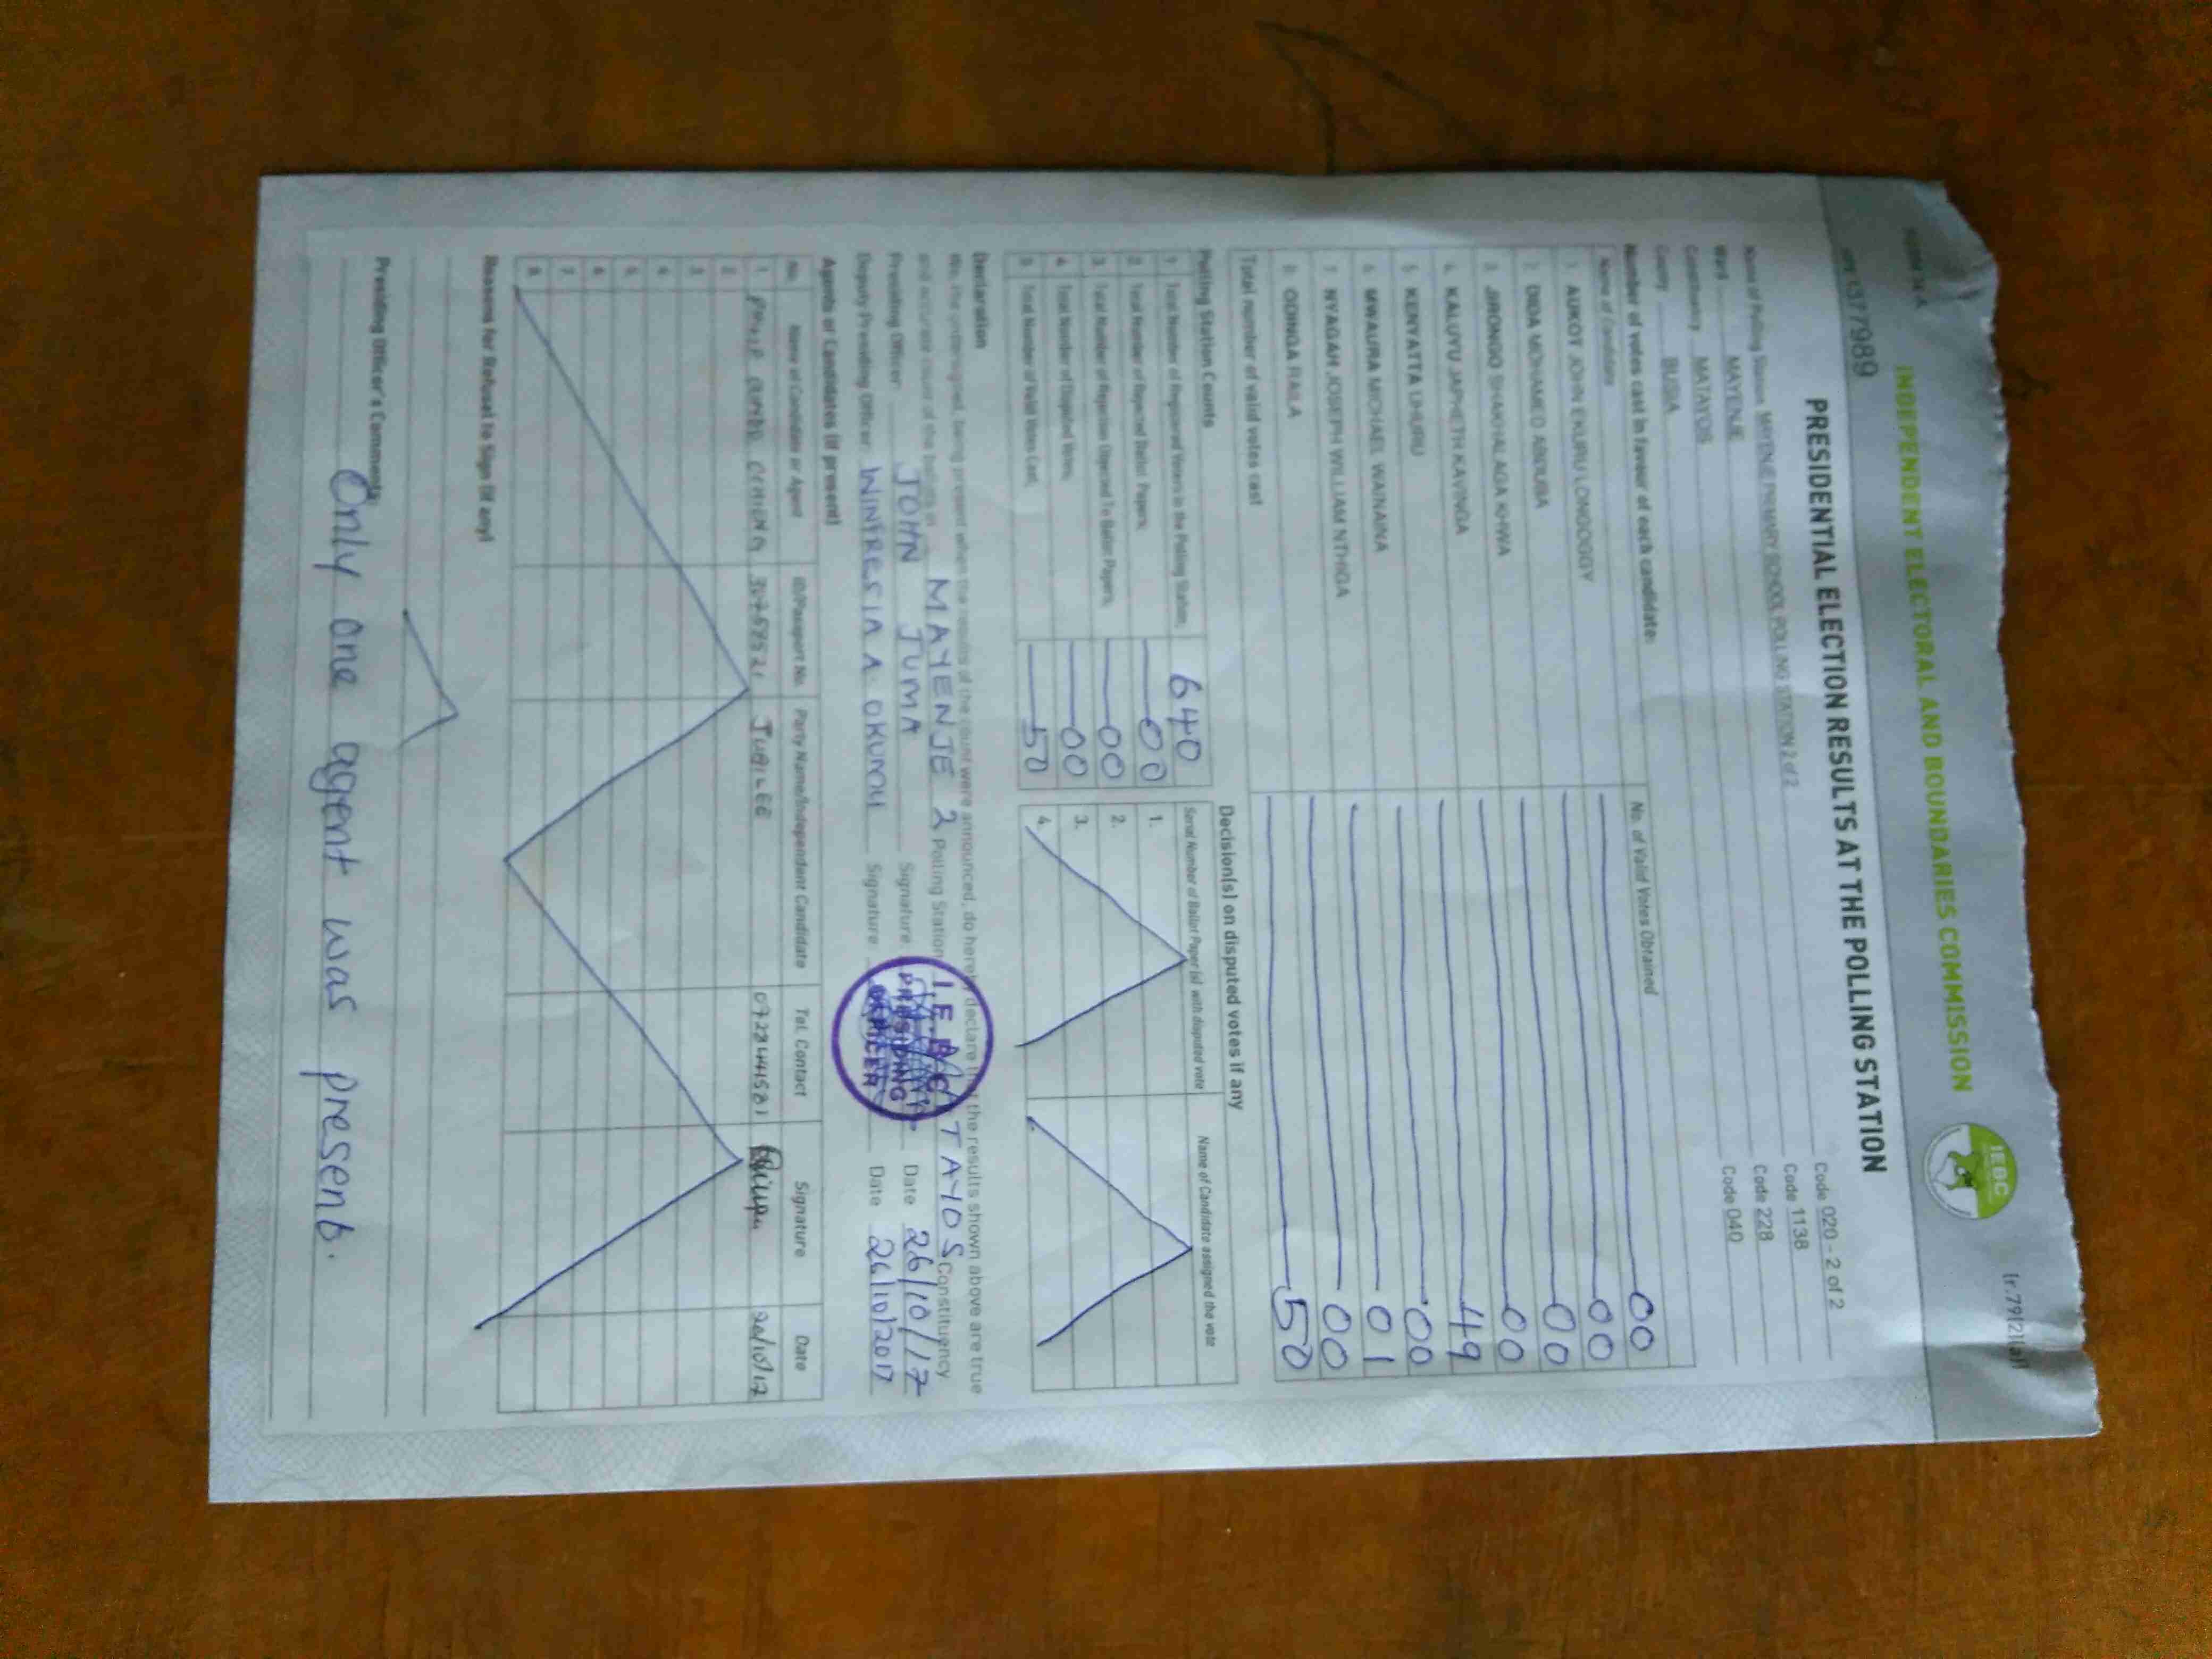 FORM 34A
(r.79(2)(a))
INDEPENDENT ELECTORAL AND BOUNDARIES COMMISSION
IEBC
PRESIDENTIAL ELECTION RESULTS AT THE POLLING STATION
Name of Polling Station MAYENJE PRIMARY SCHOOL POLLING STATION 2 of 2 Code 020 - 2 of 2
Ward MAYENJE Code 1138
Constituency MATAYOS Code 228
County BUSIA Code 040
Number of votes cast in favour of each candidate:
Name of Candidate No. of Valid Votes Obtained
1. AUKOT JOHN EKURU LONGOGGY 00
2. DIDA MOHAMED ABDUBA 00
3. JIRONGO SHAKHALAGA KHWA 00
4. KALUYU JAPHETH KAVINGA 00
5. KENYATTA UHURU 49
6. MWAURA MICHAEL WAINAINA 00
7. NYAGAH JOSEPH WILLIAM NTHIGA 01
8. ODINGA RAILA 00
Total number of valid votes cast 50
Polling Station Counts
1. Total Number of Registered Voters in the Polling Station; 640
2. Total Number of Rejected Ballot Papers; 00
3. Total Number of Rejection Objected To Ballot Papers; 00
4. Total Number of Disputed Votes; 00
5. Total Number of Valid Votes Cast; 50
Decision(s) on disputed votes if any
Serial Number of Ballot Paper (s) with disputed vote Name of Candidate assigned the vote
1.
2.
3.
4.
Declaration
We, the undersigned, being present when the results of the count were announced, do hereby declare that the results shown above are true
and accurate count of the ballots in MAYENJE 2 Polling Station TAYOS Constituency
Presiding Officer: JOHN JUMA Signature Date 26/10/17
Deputy Presiding Officer: WINFRESIA A. OKUMU Signature Date 26/10/2017
I.E.B.C
PRESIDING
OFFICER
Agents of Candidates (if present)
No. Name of Candidate or Agent ID/Passport No. Party Name/Independent Candidate Tel. Contact Signature Date
1. JUBILEE 0722441581
2.
3.
4.
5.
6.
7.
8.
Reasons for Refusal to Sign (if any)
Presiding Officer's Comments
Only one agent was present.